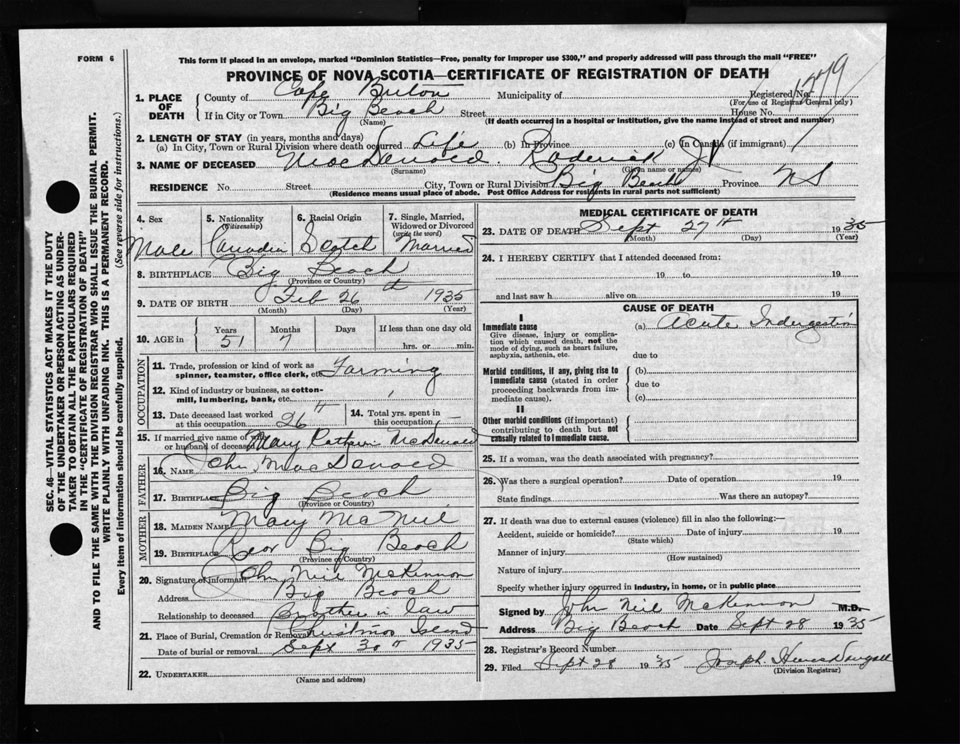 FORM 6
This form if placed in an envelope, marked "Dominion Statistics—Free, penalty for improper use $300," and properly addressed will pass through the mail "FREE"
PROVINCE OF NOVA SCOTIA—CERTIFICATE OF REGISTRATION OF DEATH
1. PLACE OF DEATH
County of Cape Breton Municipality of Registered No.
(For use of Registrar General only)
If in City or Town Big Beach Street House No.
(Name) (If death occurred in a hospital or institution, give the name instead of street and number)
2. LENGTH OF STAY (in years, months and days)
(a) In City, Town or Rural Division where death occurred Life (b) In Province (c) In Canada (if immigrant)
3. NAME OF DECEASED MacDonald Roderick J
(Surname) (Given name or names)
RESIDENCE No. Street City, Town or Rural Division Big Beach Province NS
(Residence means usual place of abode. Post Office Address for residents in rural parts not sufficient)
4. Sex Male
5. Nationality (Citizenship) Canadin
6. Racial Origin Scotch
7. Single, Married, Widowed or Divorced (write the word) Married
8. BIRTHPLACE Big Beach
(Province or Country)
9. DATE OF BIRTH Feb 26th 1935
(Month) (Day) (Year)
10. AGE in Years Months Days If less than one day old
51 7 hrs. or min.
OCCUPATION
11. Trade, profession or kind of work as spinner, teamster, office clerk, etc. Farming
12. Kind of industry or business, as cotton-mill, lumbering, bank, etc.
13. Date deceased last worked at this occupation 26th
14. Total yrs. spent in this occupation
15. If married give name of wife or husband of deceased Mary McDonald
FATHER
16. NAME John MacDonald
17. BIRTHPLACE Big Beach
(Province or Country)
MOTHER
18. MAIDEN NAME Mary McNeil
19. BIRTHPLACE Rear Big Beach
(Province or Country)
20. Signature of informant John Neil McKinnon
Address Big Beach
Relationship to deceased Brother in law
21. Place of Burial, Cremation or Removal Christmas Island
Date of burial or removal Sept 30th 1935
22. UNDERTAKER
(Name and address)
MEDICAL CERTIFICATE OF DEATH
23. DATE OF DEATH Sept 27th 1935
(Month) (Day) (Year)
24. I HEREBY CERTIFY that I attended deceased from:
19 to 19
and last saw h alive on 19
CAUSE OF DEATH
I
Immediate cause (a) Acute Indergestion
Give disease, injury or complication which caused death, not the mode of dying, such as heart failure, asphyxia, asthenia, etc.
due to
Morbid conditions, if any, giving rise to immediate cause (stated in order proceeding backwards from immediate cause).
(b)
due to
(c)
II
Other morbid conditions (if important) contributing to death but not causally related to immediate cause.
25. If a woman, was the death associated with pregnancy?
26. Was there a surgical operation? Date of operation 19
State findings Was there an autopsy?
27. If death was due to external causes (violence) fill in also the following:—
Accident, suicide or homicide? Date of injury 19
(State which)
Manner of injury
(How sustained)
Nature of injury
Specify whether injury occurred in industry, in home, or in public place
Signed by John Neil McKinnon M.D.
Address Big Beach Date Sept 28 1935
28. Registrar's Record Number
29. Filed Sept 28 1935 Joseph
(Division Registrar)
SEC. 46—VITAL STATISTICS ACT MAKES IT THE DUTY
OF THE UNDERTAKER OR PERSON ACTING AS UNDER-
TAKER TO OBTAIN ALL THE PARTICULARS REQUIRED
IN THE "CERTIFICATE OF REGISTRATION OF DEATH"
AND TO FILE THE SAME WITH THE DIVISION REGISTRAR WHO SHALL ISSUE THE BURIAL PERMIT.
WRITE PLAINLY WITH UNFADING INK. THIS IS A PERMANENT RECORD.
Every item of information should be carefully supplied. (See reverse side for instructions.)